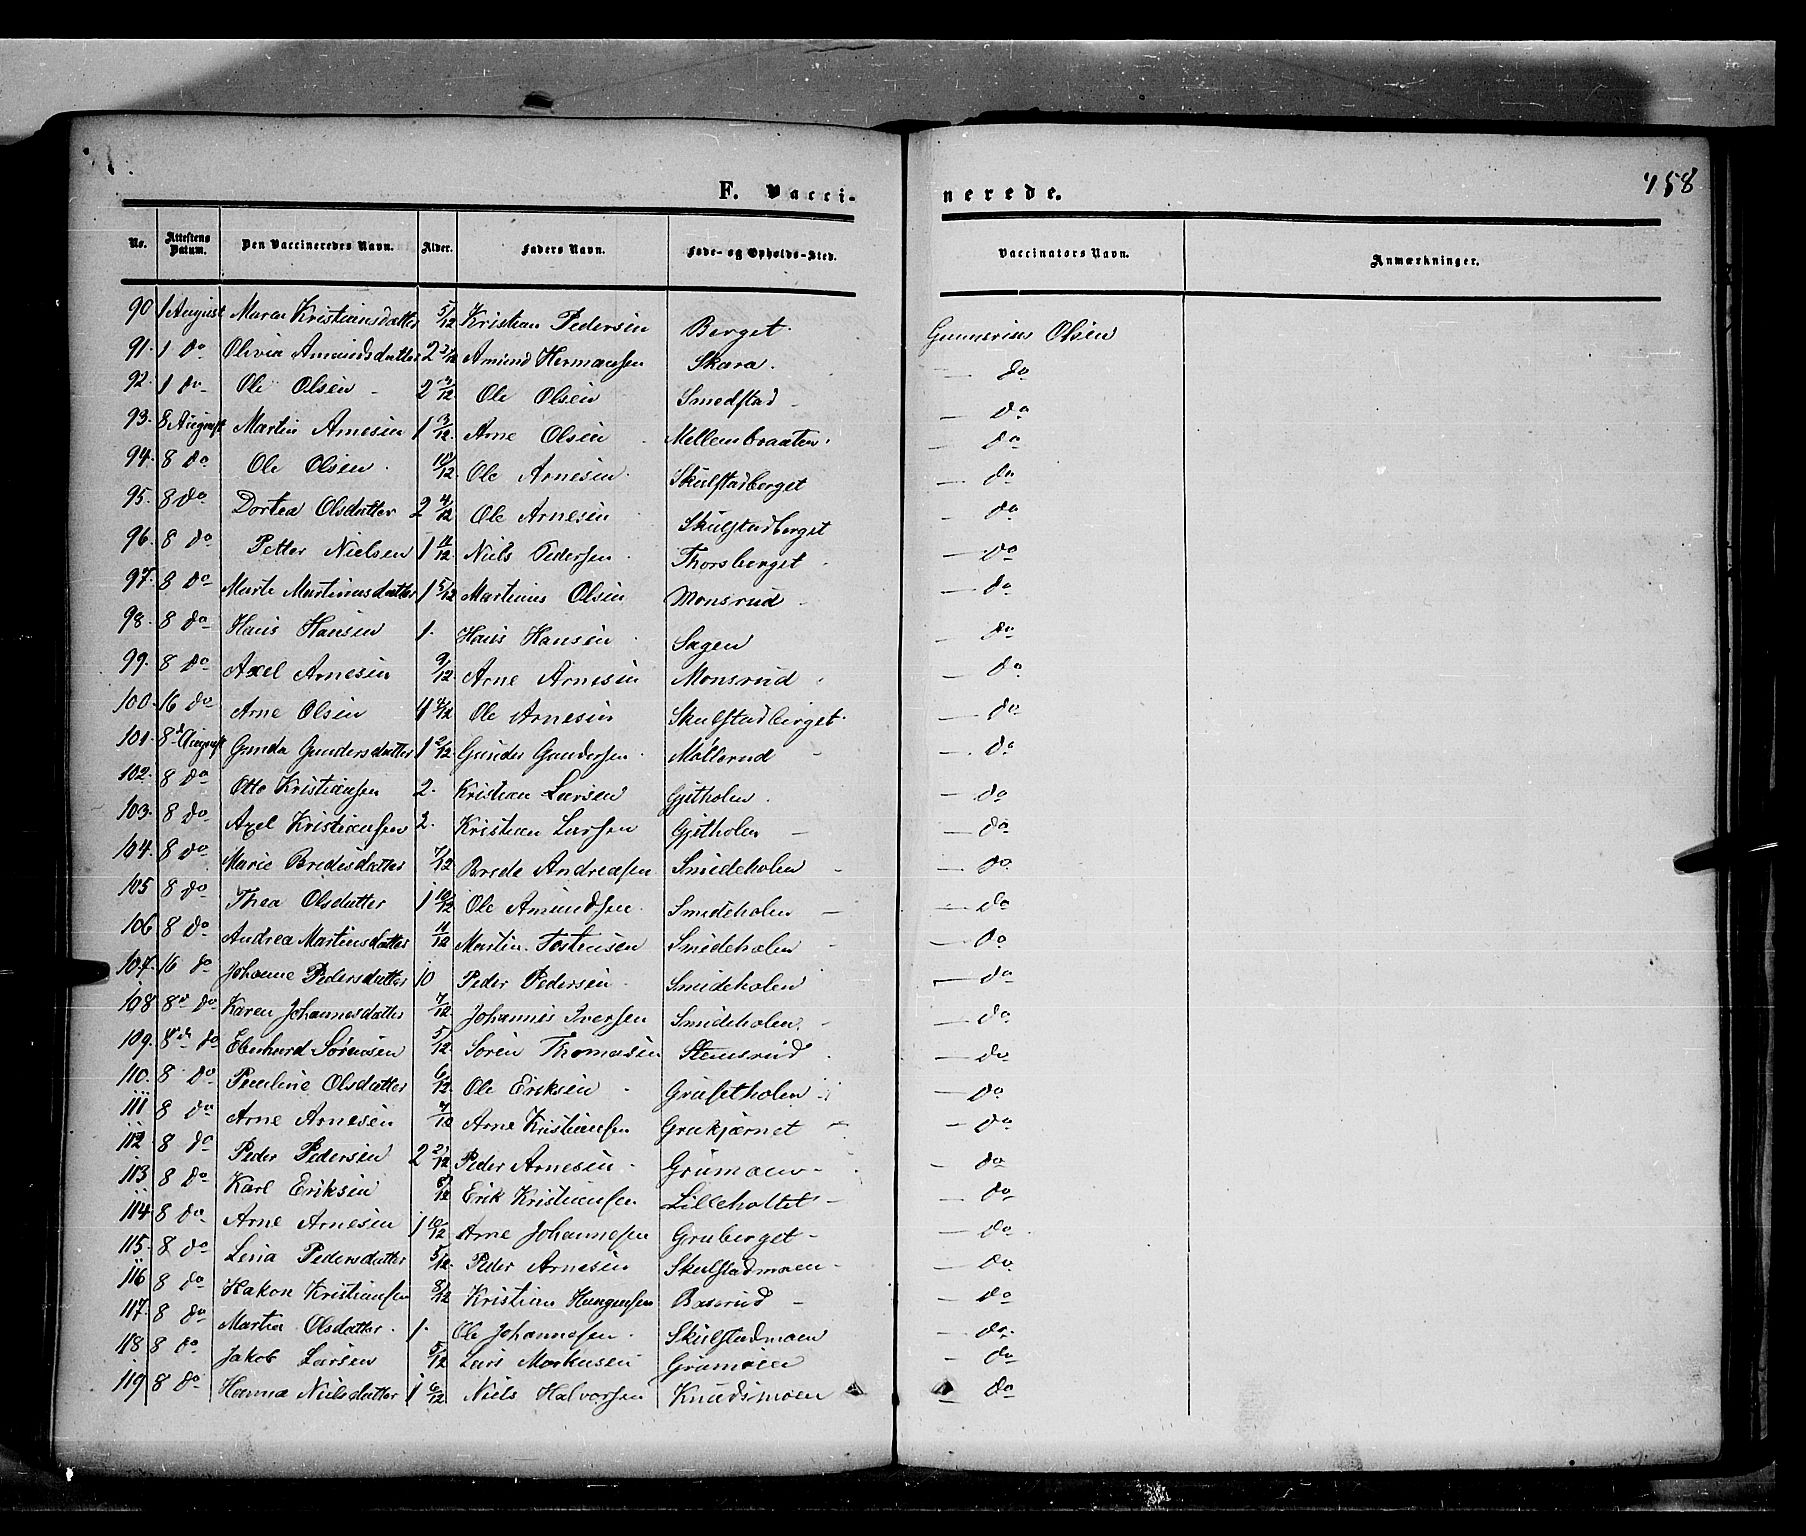 458
F. Vacci- nerede.
No. Attestens Datum. Den Vaccineredes Navn. Alder. Faders Navn. Føde- og Opholds-Sted. Vaccinators Navn. Anmærkninger.
90 1 August Maren Kristiansdatter 5/12 Kristian Pedersen Berget. Gunnerius Olsen
91. 1 do Olivia Amundsdatter 2 3/12 Amund Hermansen Skara. — do
92. 1 do Ole Olsen 2 Ole Olsen Smedstad — do
93. 8 August Martin Arnesen 1 3/12. Arne Olsen Mellembraaten. — do
94. 8 do Ole Olsen. 10/12 Ole Arnesen. Skulstadberget — do
95. 8 do Dortea Olsdatter 2 4/12 Ole Arnesen Skulstadberget — do
96. 8 do Petter Nielsen 1 11/12. Niels Pedersen. Thorsberget. — do
97. 8 do Marte Martinusdatter 1 5/12 Martinus Olsen Monsrud — do
98. 8 do Hans Hansen 1. Hans Hansen. Sagen — do
99. 8 do Axel Arnesen 9/12. Arne Arnesen Monsrud — do
100. 16 do Arne Olsen 1 4/12 Ole Arnesen Skulstadberget. — do
101. 8 August Gunda Gundersdatter 1 2/12 Gunder Gundersen. Møllerud — do
102. 8 do Otto Kristiansen 2. Kristian Larsen Gjetholen. — do
103. 8 do Axel Kristiansen 2. Kristian Larsen Gjetholen — do
104. 8 do Marie Bredesdatter 7/12 Brede Andreasen Smedeholen — do
105 8 do Thea Olsdatter 1 10/12 Ole Amundsen. Smedeholen — do
106 8 do Andrea Martinsdatter 11/12 Martin Tostensen Smedeholen — do
107. 16 do Johanne Pedersdatter 10 Peder Pedersen. Smedeholen — do
108 8 do Karen Johannesdatter 7/12 Johannes Iversen Smedeholen. — do
109. 8 do Eberhard Sørensen 5/12 Søren Thomasen Stensrud — do
110. 8 do Pauline Olsdatter 6/12. Ole Eriksen Grusetholen — do
111 8 do Arne Arnesen Arne Kristiansen Grukjærnet — do
112 8 do Peder Pedersen 2 2/12 Peder Arnesen. Grumoen — do
113 8 do Karl Eriksen 8/12 Erik Kristiansen Lilleholtet — do
114 8 do Arne Arnesen 1 10/12 Arne Johannesen Gruberget — do
115. 8 do Lena Pedersdatter 5/12. Peder Arnesen Skulstadmoen — do
116 8 do Hakon Kristiansen 8/12 Kristian Basrud — do
117. 8 do Martia Olsdatter. 1. Ole Johannesen. Skulstadmoen — do.
118 8 do Jakob Larsen 5/12 Lars Markusen Grumoen — do
119 8 do Hanna Nielsdatter 1 6/12 Niels Halvorsen Knudsmoen — do